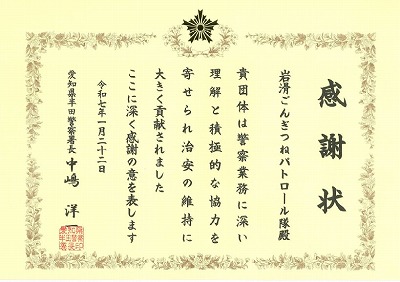 感謝状
岩滑ごんぎつねパトロール隊殿
貴団体は警察業務に深い
理解と積極的な協力を
寄せられ治安の維持に
大きく貢献されました
ここに深く感謝の意を表します
令和七年一月二十二日
愛知県半田警察署長 中嶋 洋